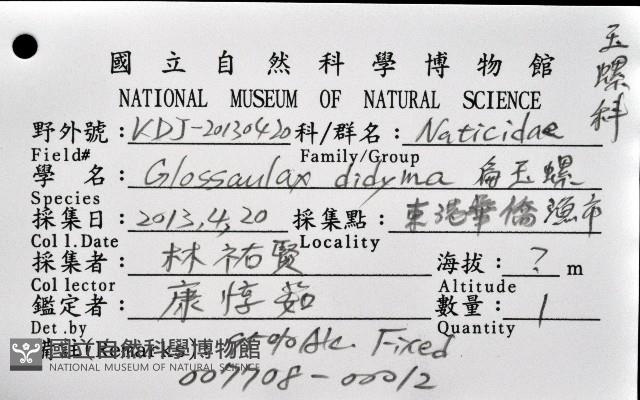 玉螺科
國立自然科學博物館
NATIONAL MUSEUM OF NATURAL SCIENCE
野外號：KDJ-20130420 科/群名：Naticidae
Field# Family/Group
學 名：Glossaulax didyma 扁玉螺
Species
採集日：2013,4,20 採集點：東港華僑漁市
Coll.Date Locality
採集者：林祐賢 海拔：? m
Collector Altitude
鑑定者：康惇茹 數量：1
Det.by Quantity
(Remarks) 95% Alc. Fixed
國立自然科學博物館
NATIONAL MUSEUM OF NATURAL SCIENCE
007708-00012